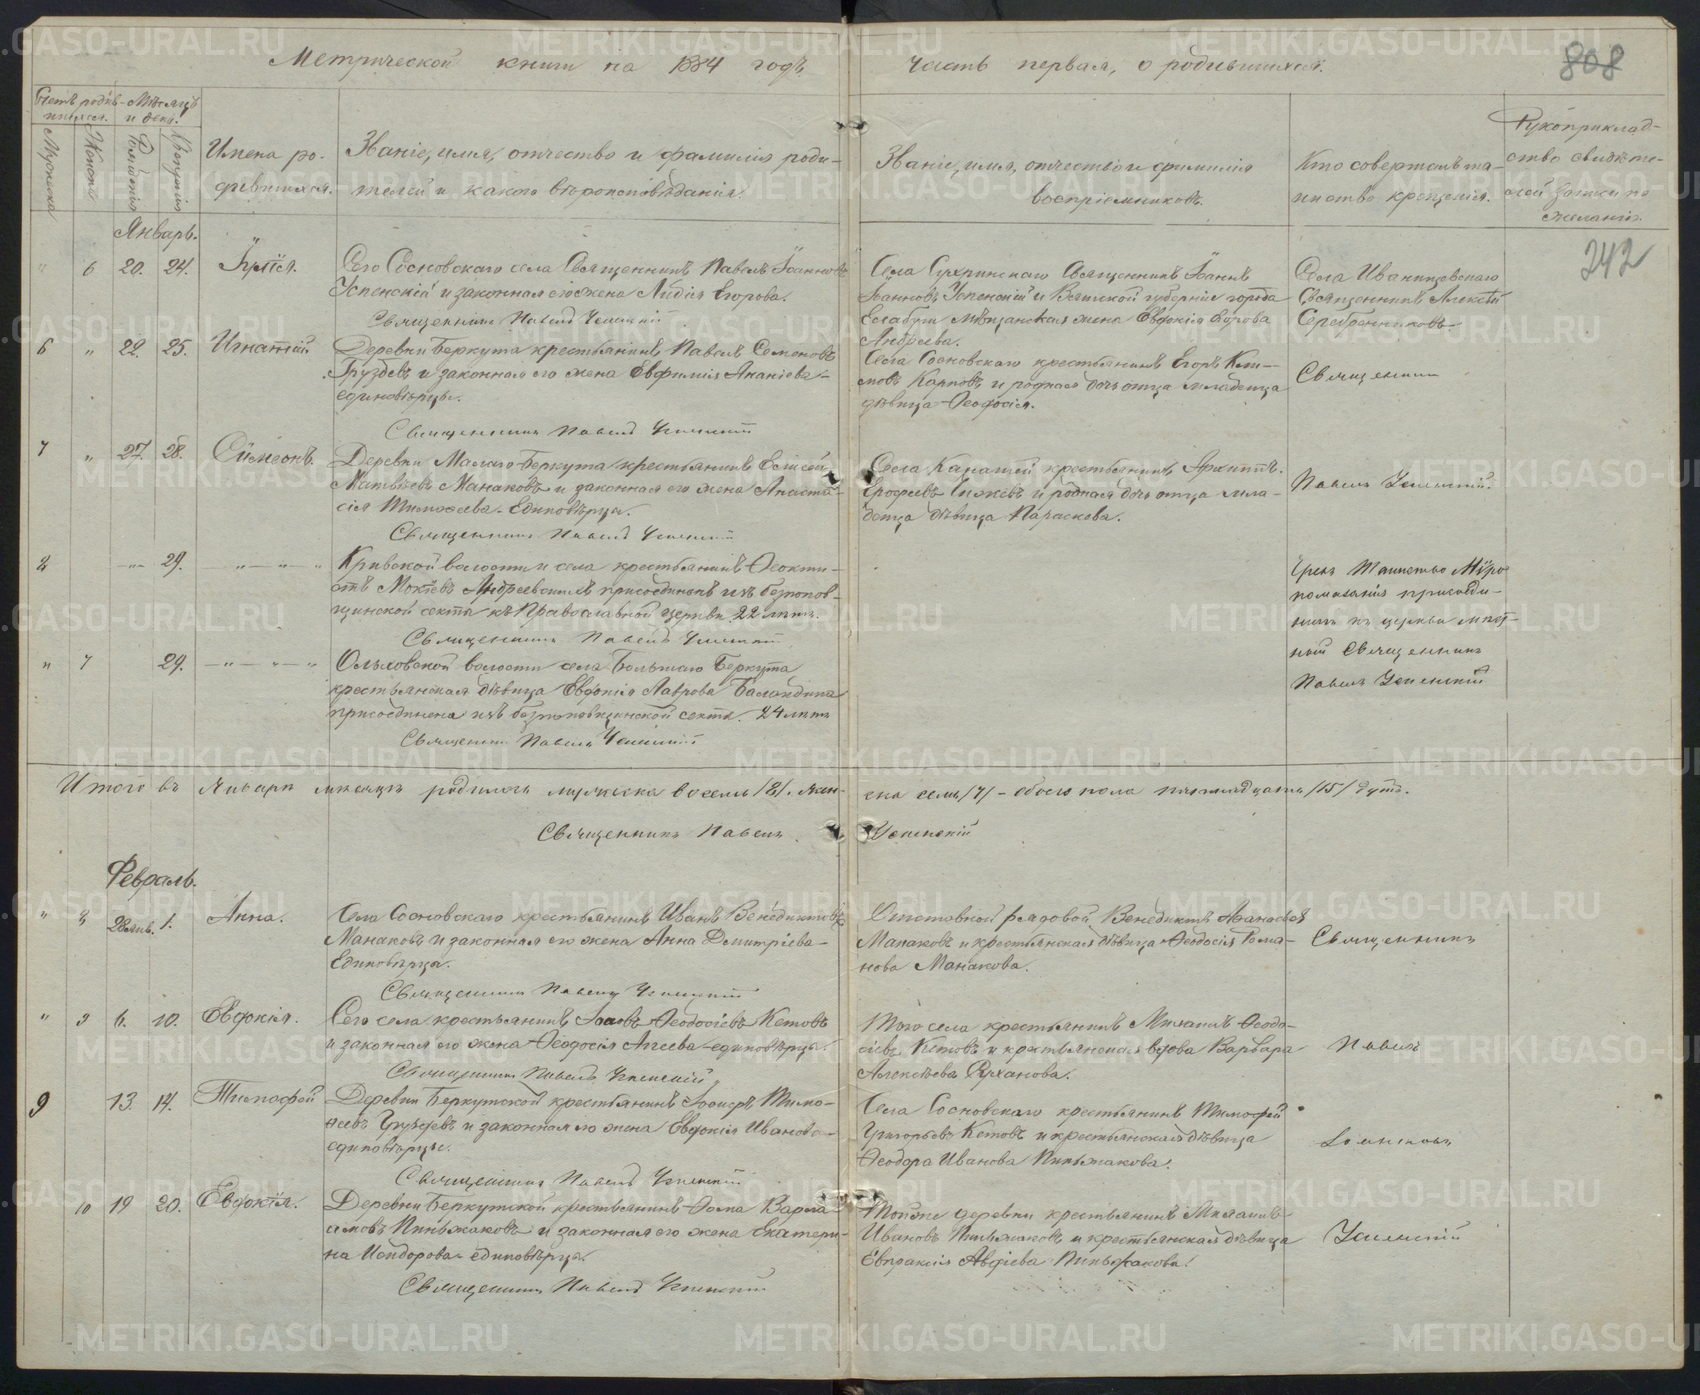 Метрической книги на 1884 годъ
часть первая, о родившихся.
808
Счетъ родив-
шихся.
Мѣсяцъ
и день.
Мужеска
Женска
Рожденія
Крещенія
Имена ро-
дившихся.
Званіе, имя, отчество и фамилія роди-
телей и какого вѣроисповѣданія.
Званіе, имя, отчество и фамилія
воспріемниковъ.
Кто совершалъ та-
инство крещенія.
Рукоприклад-
ство свидѣте-
лей записи по
желанію.
242
Январь.
" 6 20. 24.
Сего Сосновскаго села Священникъ Павелъ Іоанновъ
Успенскій и законная его жена Лидія Егорова.
Священникъ Павелъ Успенскій
Села Сугринскаго Священникъ Іоаннъ
Іоанновъ Успенскій и Вятской губерніи города
Елабуги мѣщанская жена Евдокія
Андреева.
Села Иванищевскаго
Священникъ Алексѣй
Серебренниковъ
6 " 22. 25. Игнатій.
Деревни Беркута крестьянинъ Павелъ Семеновъ
Груздевъ и законная его жена Евфимія Ананіева
единовѣрцы.
Священникъ Павелъ Успенскій
Села Сосновскаго крестьянинъ Егоръ Кли-
мовъ Карповъ и родная дочь отца младенца
дѣвица Ѳеодосія.
Священникъ
7 " 27. 28. Сѵмеонъ.
Деревни Малаго Беркута крестьянинъ Елисей
Матвѣевъ Манаковъ и законная его жена Анаста-
сія Тимоѳеева. Единовѣрцы.
Священникъ Павелъ Успенскій
Села Канашей крестьянинъ Архиппъ
Ерофеевъ Чижевъ и родная дочь отца мла-
денца дѣвица Параскева.
Павелъ Успенскій.
8 29.
Кривской волости и села крестьянинъ Ѳеокти-
стъ Мокіевъ присоединенъ изъ безпопов-
щинской секты къ Православной церкви 22 лѣтъ.
Священникъ Павелъ Успенскій
Чрезъ Таинство Мѵро
помазанія присоеди-
нилъ къ церкви мѣст-
ный Священникъ
Павелъ Успенскій
" 7 29.
Ольховской волости села Большаго Беркута
крестьянская дѣвица Евдокія Лаврова Баландина
присоединена изъ безпоповщинской секты. 24 лѣтъ
Священникъ Павелъ Успенскій
Итого въ Январѣ мѣсяцѣ родилось мужеска восемь /8/. жен-
ска семь /7/ - обоего пола пятнадцать /15/ душъ.
Священникъ Павелъ
Успенскій
Февраль.
" 8 28 янв. 1. Анна.
Села Сосновскаго крестьянинъ Иванъ Венедиктовъ
Манаковъ и законная его жена Анна Димитріева
Единовѣрцы.
Священникъ Павелъ Успенскій
Отставной рядовой Венедиктъ Аѳанасьевъ
Манаковъ и крестьянская дѣвица Ѳеодосія Рома-
нова Манакова.
Священникъ
" 9 6. 10. Евдокія.
Сего села крестьянинъ Іаковъ Ѳеодосіевъ Кетовъ
и законная его жена Ѳеодосія Аггеева единовѣрцы.
Священникъ Павелъ Успенскій
Того села крестьянинъ Михаилъ Ѳеодо-
сіевъ Кетовъ и крестьянская вдова Варвара
Алексѣева
Павелъ
9 13. 14. Тимофей
Деревни Беркутской крестьянинъ Тимо-
ѳеевъ Груздевъ и законная его жена Евдокія Иванова
единовѣрцы.
Священникъ Павелъ Успенскій
Села Сосновскаго крестьянинъ Тимофей
Григорьевъ Кетовъ и крестьянская дѣвица
Ѳеодора Иванова Пиньжакова.
10 19 20. Евдокія.
Деревни Беркутской крестьянинъ Ѳома Варла
амовъ Пиньжаковъ и законная его жена Екатери-
на Исидорова единовѣрцы.
Священникъ Павелъ Успенскій
Тойже деревни крестьянинъ Михаилъ
Ивановъ Пиньжаковъ и крестьянская дѣвица
Евпраксія Авфіева Пиньжакова.
Успенскій
METRIKI.GASO-URAL.RU